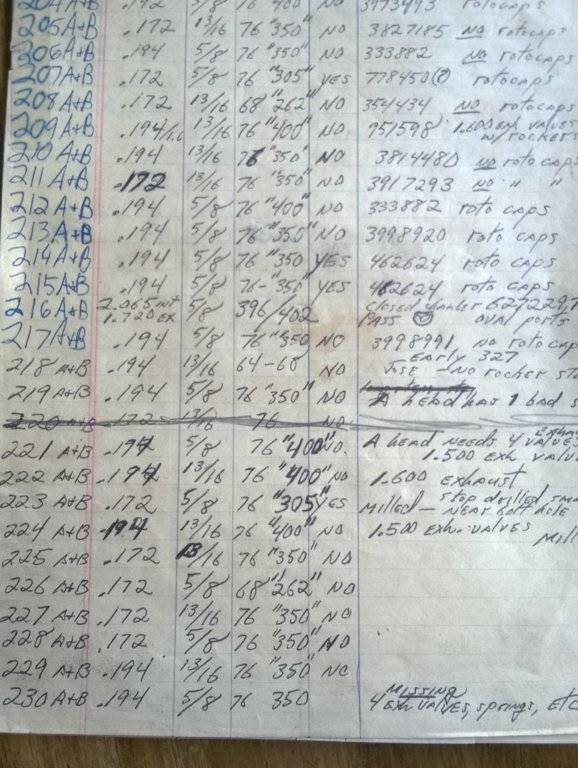 204 A+B .192 5/8 76 "400" NO 3973493 rotocaps
205 A+B .172 13/16 76 "350" NO 3827185 NO rotocaps
206 A+B .194 5/8 76 "350" NO 333882 NO rotocaps
207 A+B .172 5/8 76 "305" YES 778450(?) rotocaps
208 A+B .172 13/16 68 "262" NO 354434 NO rotocaps
209 A+B .194 13/16 76 "400" NO 951598 1.600 exh valves
w/rockers
210 A+B .194 13/16 76 "350" NO 3814480 NO roto caps
211 A+B .172 13/16 76 "350" NO 3917293 NO " "
212 A+B .194 5/8 76 "400" NO 333882 roto caps
213 A+B .194 5/8 76 "350" NO 3998920 roto caps
214 A+B .194 5/8 76 "350 YES 462624 roto caps
215 A+B .194 5/8 76-"350" YES 462624 roto caps
216 A+B 2.065 int 5/8 396/402 closed 6272292
1.720 EX PASS oval ports
217 A+B .194 5/8 76 "350 NO 3998991 no roto cap
218 A+B .194 13/16 64-68 NO EARLY 327
USE - No rocker st
219 A+B .194 5/8 76 "350" NO A head has 1 bad s
220 A+B .172 13/16 76 NO
221 A+B .194 5/8 76 "400" NO. A head needs 4 valves
1.500 exh valv
222 A+B .194 13/16 76 "400" NO 1.600 exhaust
223 A+B .172 5/8 76 "305" YES Milled - stop drilled sma
near bolt hole
224 A+B .194 13/16 76 "400" NO 1.500 exh. valves Mil
225 A+B .172 13/16 76 "350" NO
226 A+B .172 5/8 68 "262" NO
227 A+B .172 13/16 76 "350" NO
228 A+B .172 5/8 76 "350" NO
229 A+B .194 13/16 76 "350" NO
230 A+B .194 5/8 76 350 MISSING
4 exh valves, springs, ETC